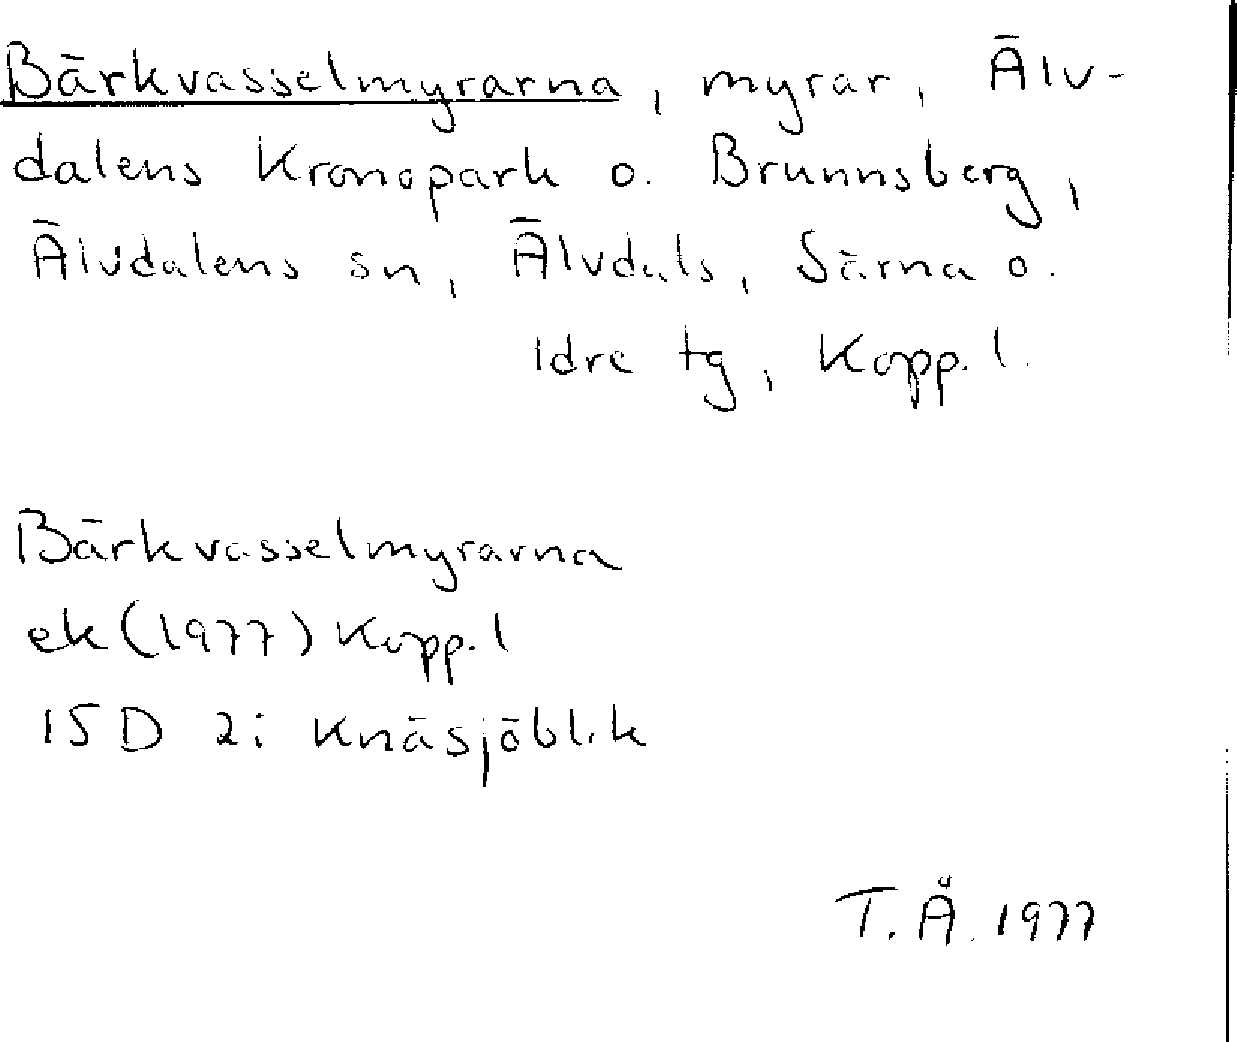 Bärkvasselmyrarna, myrar, Älv-
dalens Kronopark o. Brunnsberg,
Älvdalens sn, Älvdals, Särna o.
Idre tg, Kopp. l.
Bärkvasselmyrarna
ek (1977) Kopp. l
15 D 2i Knäsjöblik
T. Å. 1977